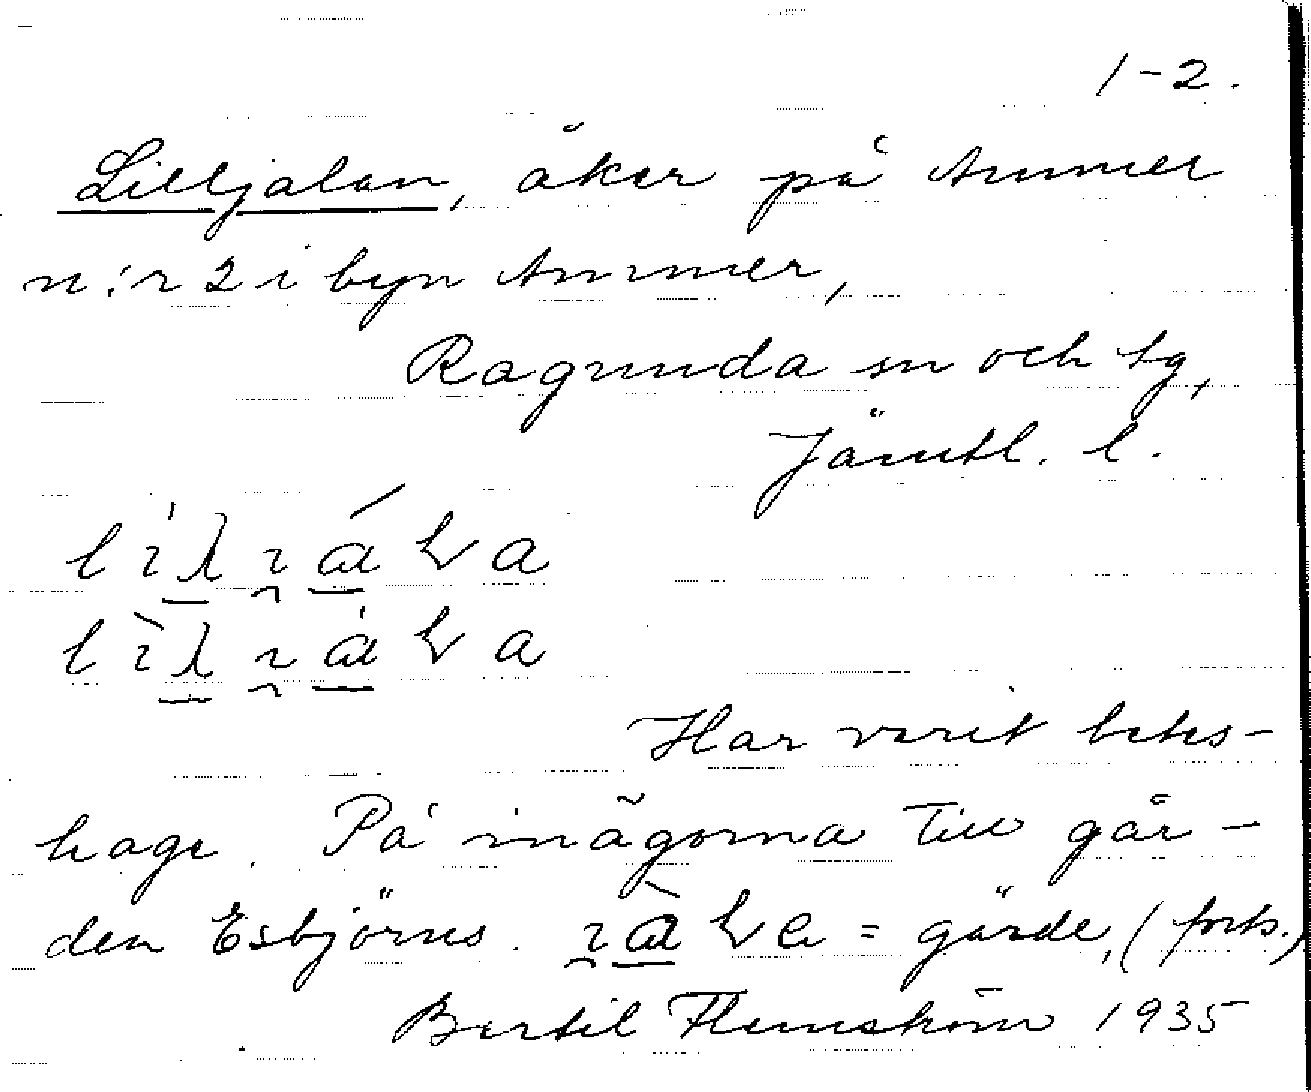 1-2.
Lilljalan, åker på Ammer
n:r 2 i byn Ammer,
Ragunda sn och tg,
Jämtl. l.
Har varit betes-
hage. På inägorna till går-
den Esbjörns. = gärde, (forts.)
Bertil Flemström 1935